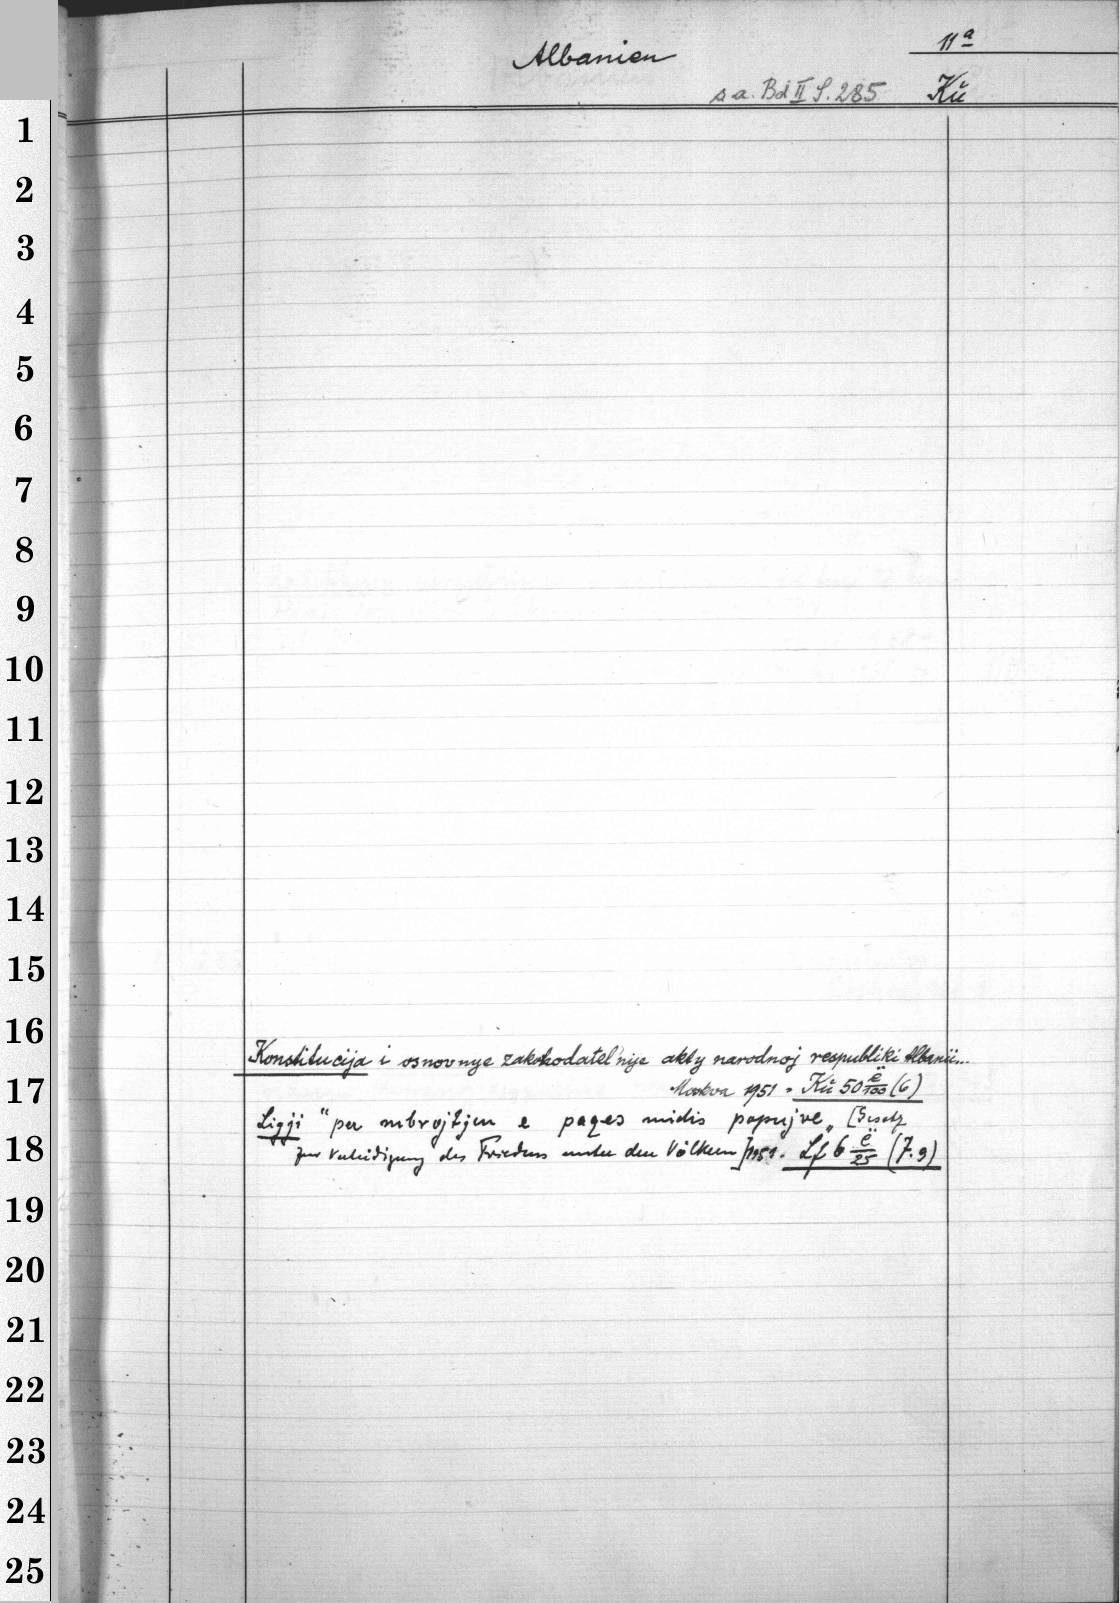 11a
Albanien
s a. Bd II S. 285
Kü
1
2
3
4
5
6
7
8
9
10
11
12
13
14
15
16
Konstitucija i osnovnye zakohodatel'nije akty narodnoj respubliki Albanii...
17
Moskva 1951 - Kü 50 ë/100 (6)
Ligji "per mbrojtjen e paqes midis popujve" [Gesetz
18
zur Verteidigung des Friedens unter den Völkern] 1951. Lf 6 ë/25 (7.9)
19
20
21
22
23
24
25